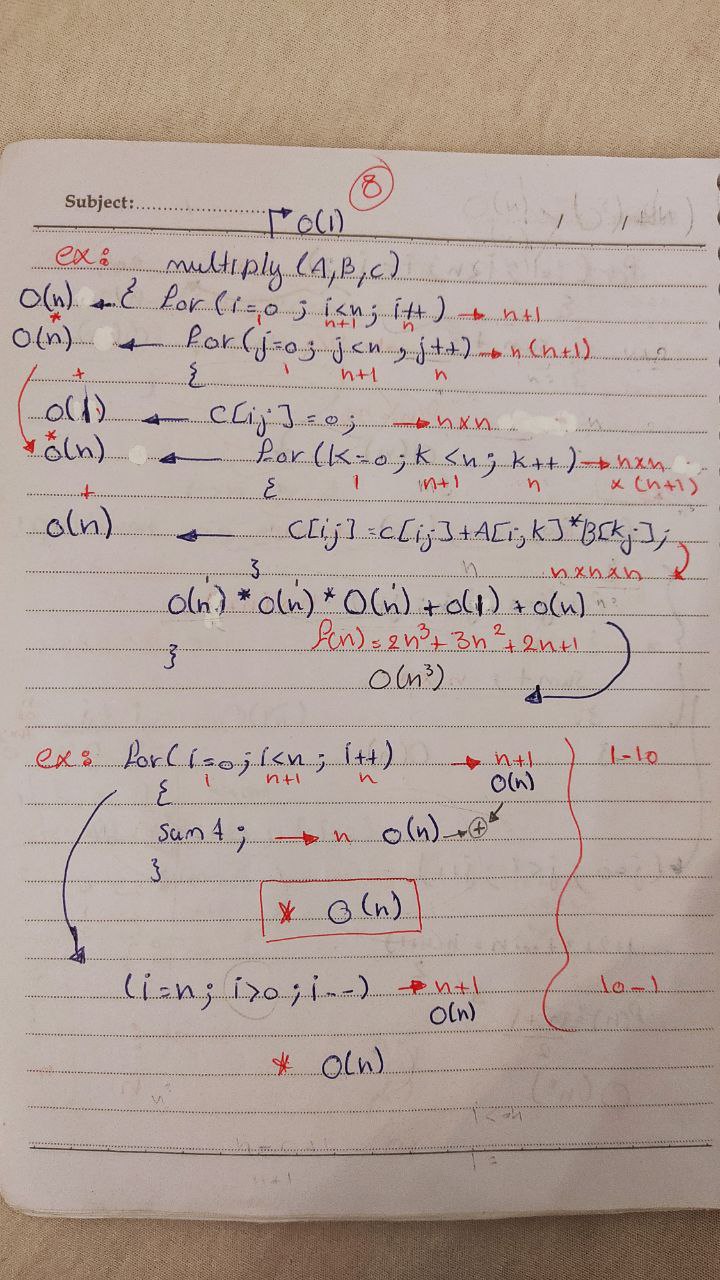 8
Subject:
O(1)
ex: multiply (A,B,C)
O(n) ← { for(i=0 ; i<n; i++) → n+1
* 1 n+1 n
O(n) ← for(j=0; j<n ; j++) → n(n+1)
+ { 1 n+1 n
O(1) ← C[ij] = 0; → n×n
*
O(n) ← for(k=0; k<n; k++) → n×n
+ { 1 n+1 n × (n+1)
O(n) ← C[ij] = C[ij] + A[i,k] * B[kj];
} n×n×n
O(n) * O(n) * O(n) + O(1) + O(n)
} f(n) = 2n³ + 3n² + 2n+1
O(n³)
ex: for(i=0; i<n ; i++) → n+1 1-10
{ 1 n+1 n O(n)
; → n O(n) → +
}
* O(n)
(i=n; i>0; i--) → n+1 10-1
O(n)
* O(n)